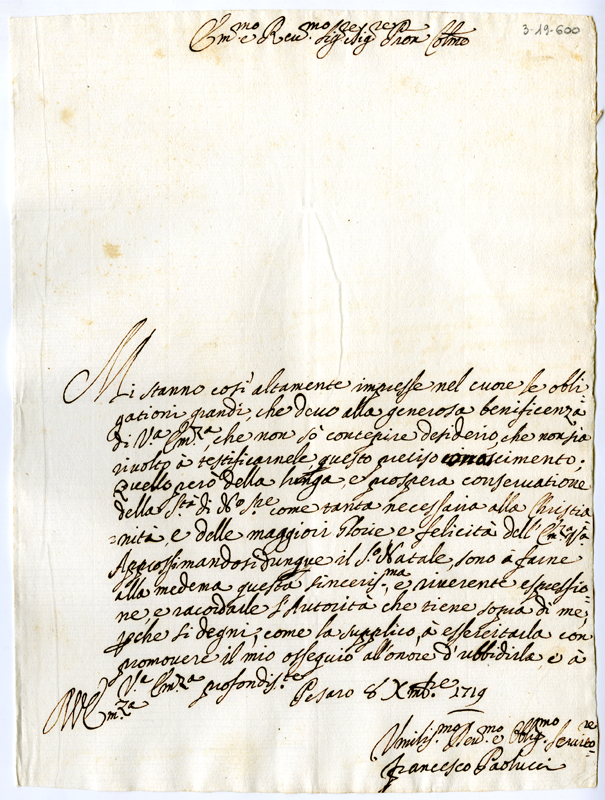 3-19-600
Em.mo e Reu.mo Sig.re Sig.re Pron Colmo
Mi stanno così altamente impresse nel cuore le obli=
gationi grandi, che deuo alla generosa benificenza
di V.a Em.za, che non sò concepire desiderio, che non sia
riuolto à testificarnele questo preciso conoscimento;
Quello però della lunga, e prospera conseruatione
della S.tà di N.ro S.re come tanto necessaria alla Christia
=nità, e delle maggiori Glorie e felicità dell' Em.za
Approssimandosi dunque il S.o Natale, sono à farne
alla medema questa sinceriss.ma, e riuerente espressio=
ne, e racordarle l'Autorità che tiene sopra di me,
perche si degni, come la supplico, à essercitarla con
promouere il mio osseguio all'onore d'ubbidirla, e à
V.a Em.za profondis.te
Pesaro 8 Xmb.e 1719
Em.za
Vmilis.mo Deu.mo e Oblig.mo Seruito.re
Francesco Paolucci